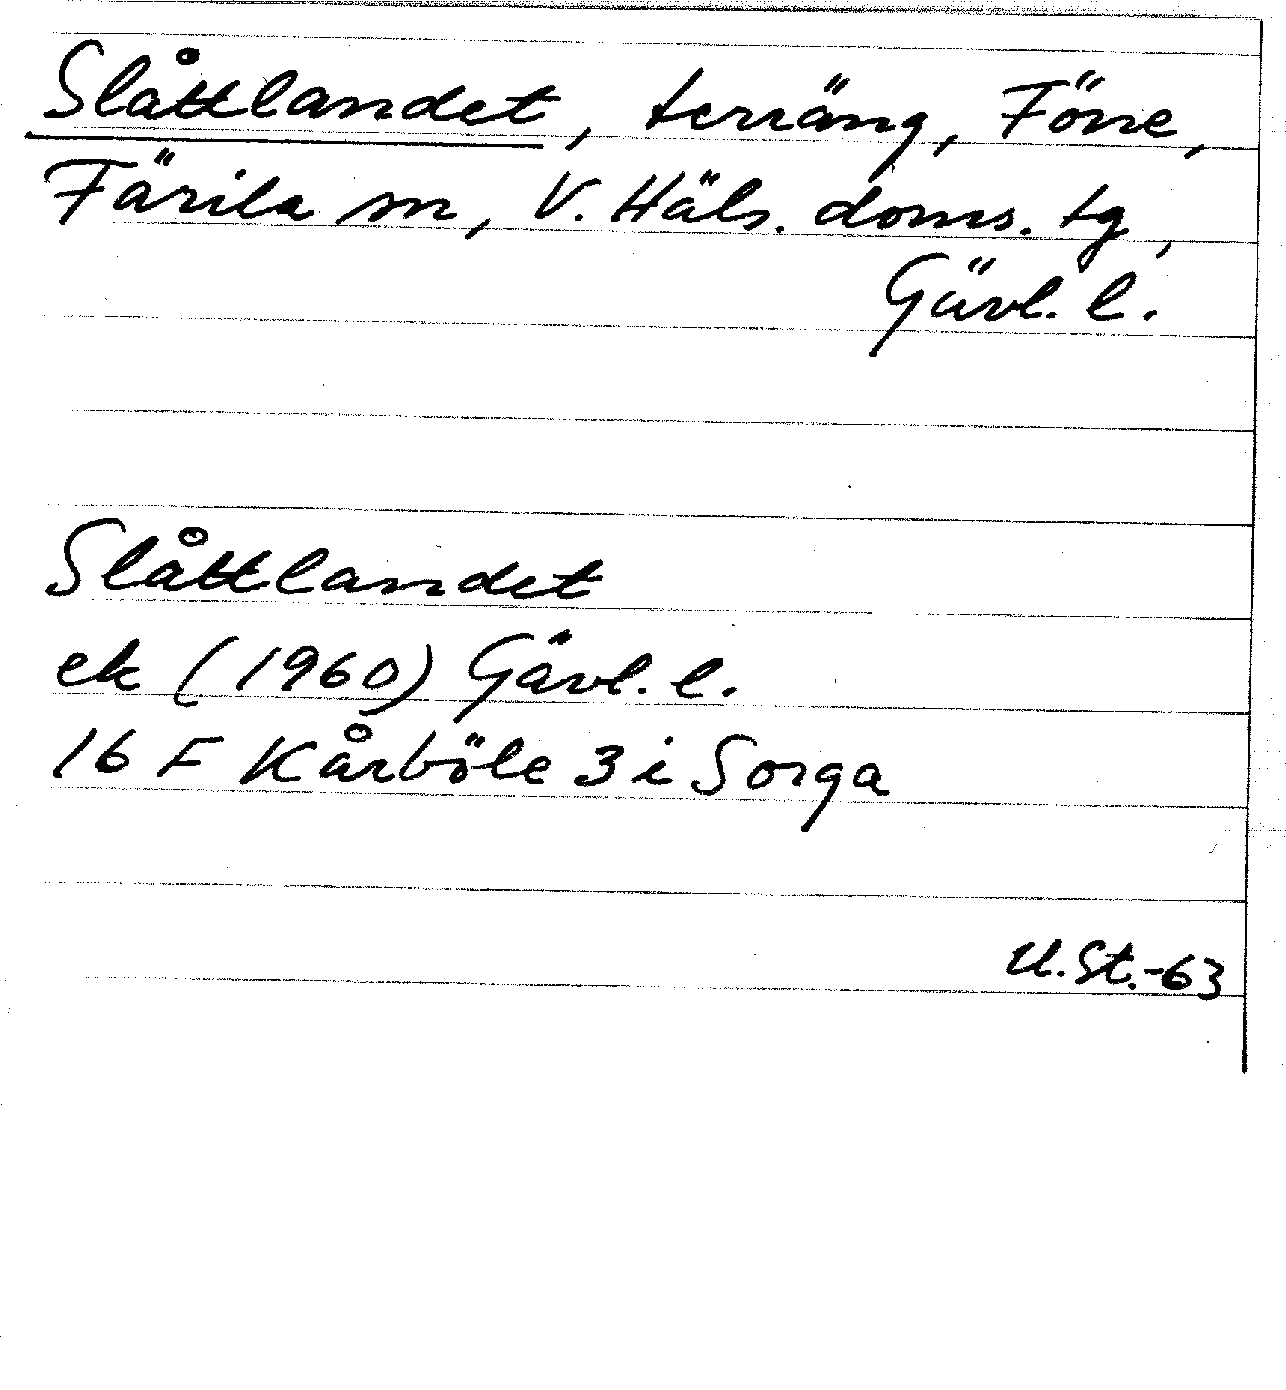 Slåttlandet, terräng, Föne,
Färila sn, V. Häls. doms. tg,
Gävl. l.
Slåttlandet
ek (1960) Gävl. l.
16 F Kårböle 3 i Sorga
U. St. -63